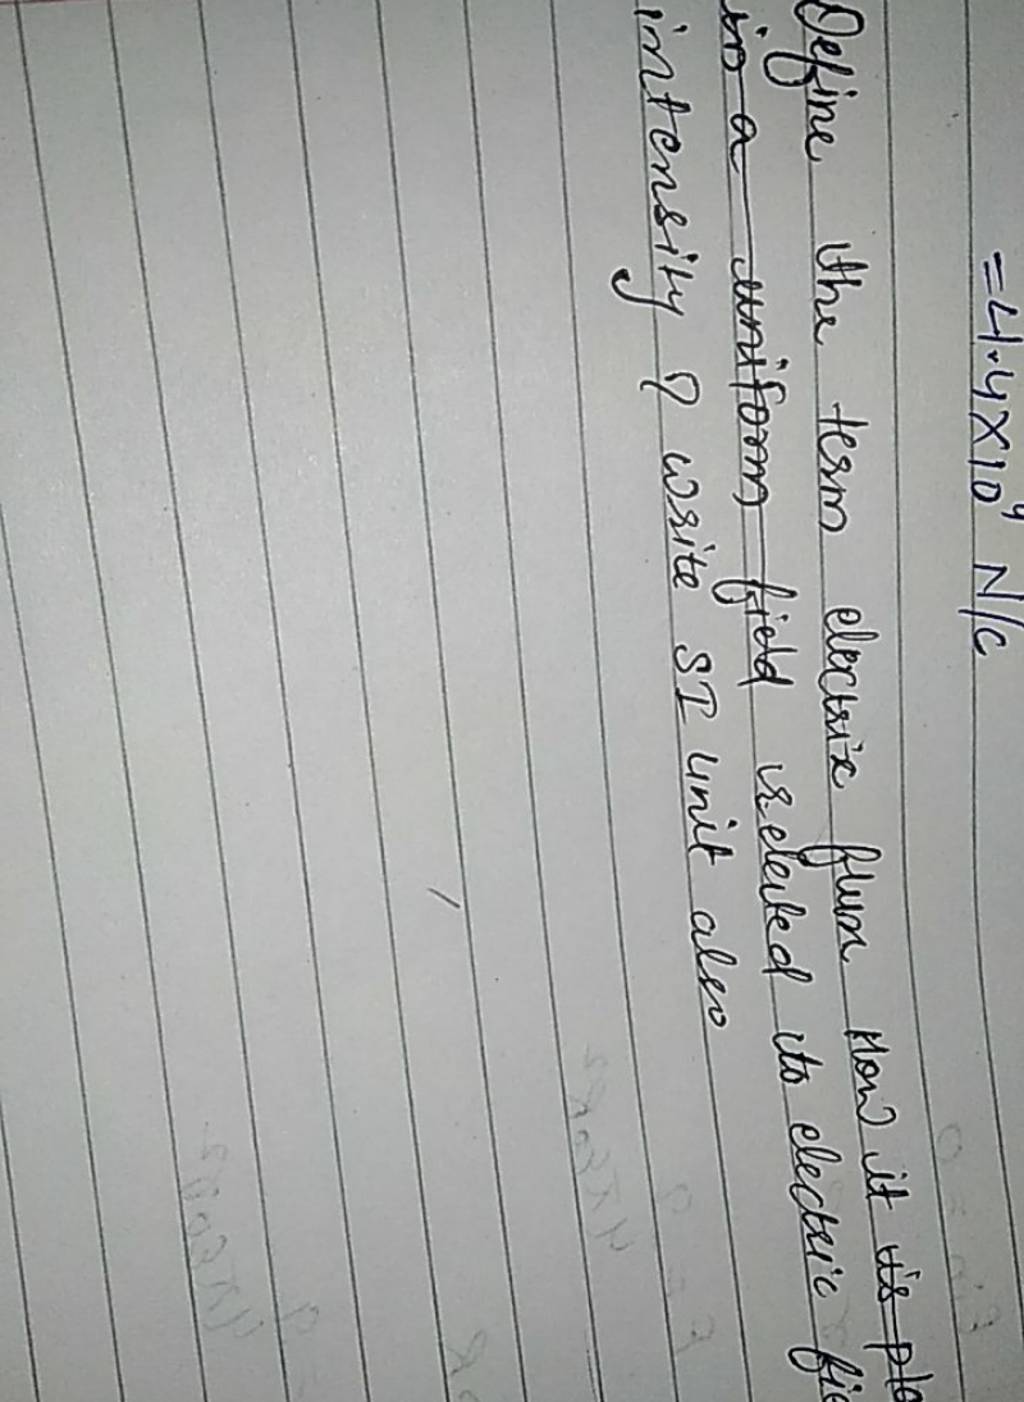 =4.4×10⁴ N/C
Define the term electric flux How it is pla
in a uniform field releted to electric fie
intensity ? write SI unit also